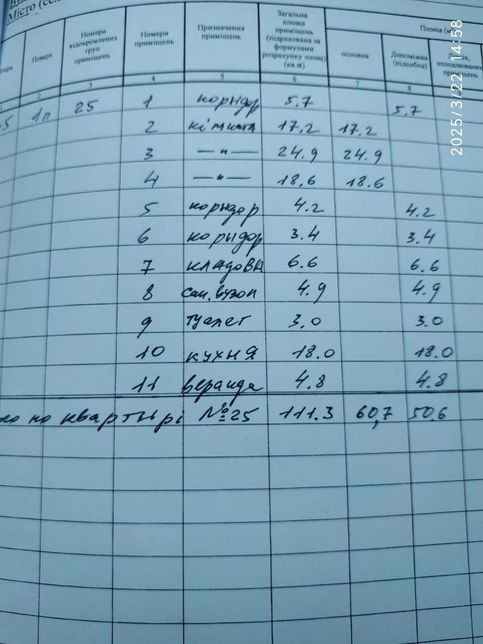 Місто (се
Площа (м
Поверх
Номери відокремлених груп приміщень
Номери приміщень
Призначення приміщень
Загальна площа приміщень (підрахована за формулами розрахунку площ) (кв.м)
основна
Допоміжна (підсобна)
2 3 4 5 6 7 8
1п 25 1 коридор 5,7 5,7
2 кімната 17,2 17,2
3 —"— 24.9 24.9
4 —"— 18,6 18.6
5 коридор 4.2 4.2
6 корыдор 3.4 3.4
7 кладовы 6.6 6.6
8 сан. вузол 4.9 4.9
9 туалет 3.0 3.0
10 кухня 18.0 18.0
11 веранда 4.8 4.8
по квартырі №25 111.3 60,7 50.6
2025/3/22 14:58